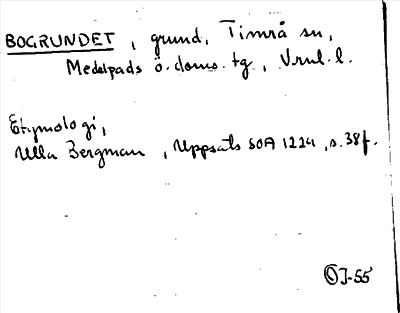 BOGRUNDET, grund, Timrå sn,
Medelpads ö. doms. tg, Vnrl. l.
Etymologi,
Ulla Bergman, Uppsats SOA 1224, s. 38f.
OJ-55